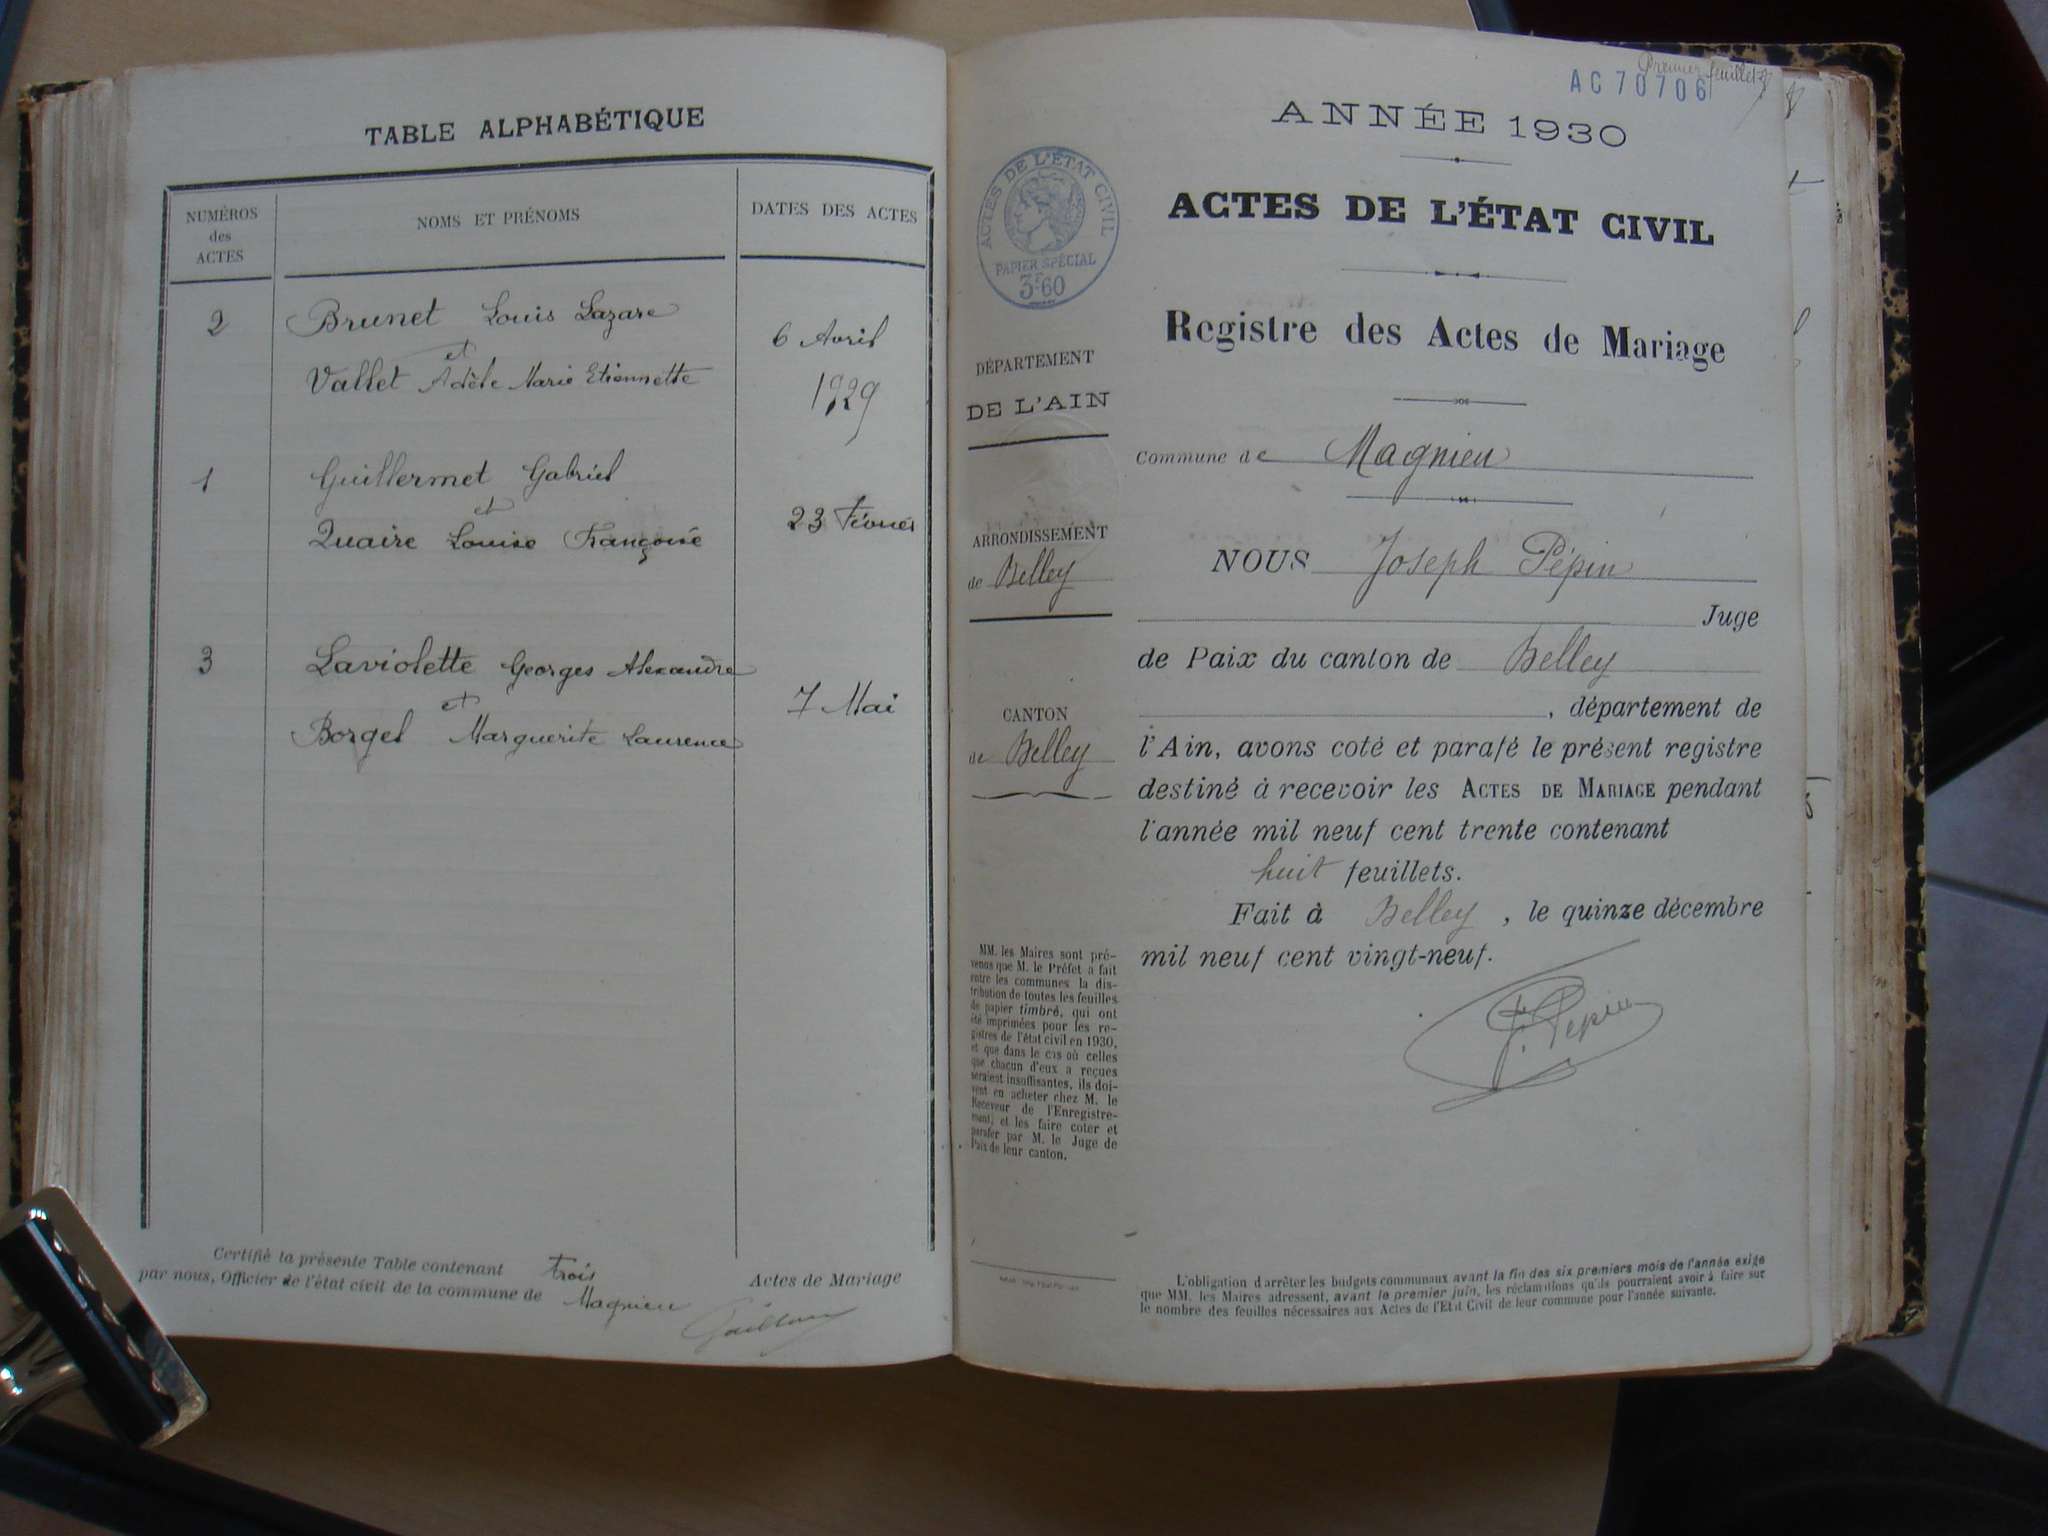 TABLE ALPHABÉTIQUE
NUMÉROS
des
ACTES
NOMS ET PRÉNOMS
DATES DES ACTES
2
Brunet Louis Lazare
et
Vallet Adèle Marie Etiennette
6 Avril
1929
1
Guillermet Gabriel
et
Quaire Louise Françoise
23 Février
3
Laviolette Georges Alexandre
et
Borgel Marguerite Laurence
7 Mai
Certifié la présente Table contenant trois Actes de Mariage
par nous, Officier de l'état civil de la commune de Magnieu
Premier feuillet
AC70706
ANNÉE 1930
ACTES DE L'ÉTAT CIVIL
PAPIER SPÉCIAL
3F60
ACTES DE L'ÉTAT CIVIL
Registre des Actes de Mariage
DÉPARTEMENT
DE L'AIN
Commune de Magnieu
ARRONDISSEMENT
de Belley
NOUS Joseph Pépin
Juge
de Paix du canton de Belley
, département de
CANTON
de Belley
l'Ain, avons coté et parafé le présent registre
destiné à recevoir les ACTES DE MARIAGE pendant
l'année mil neuf cent trente contenant
huit feuillets.
Fait à Belley, le quinze décembre
mil neuf cent vingt-neuf.
J. Pépin
MM. les Maires sont pré-
venus que M. le Préfet a fait
entre les communes la dis-
tribution de toutes les feuilles
de papier timbré, qui ont
été imprimées pour les re-
gistres de l'état civil en 1930,
et que dans le cas où celles
que chacun d'eux a reçues
seraient insuffisantes, ils doi-
vent en acheter chez M. le
Receveur de l'Enregistre-
ment, et les faire coter et
parafer par M. le Juge de
Paix de leur canton.
L'obligation d'arrêter les budgets communaux avant la fin des six premiers mois de l'année exige
que MM. les Maires adressent, avant le premier juin, les réclamations qu'ils pourraient avoir à faire sur
le nombre des feuilles nécessaires aux Actes de l'Etat Civil de leur commune pour l'année suivante.